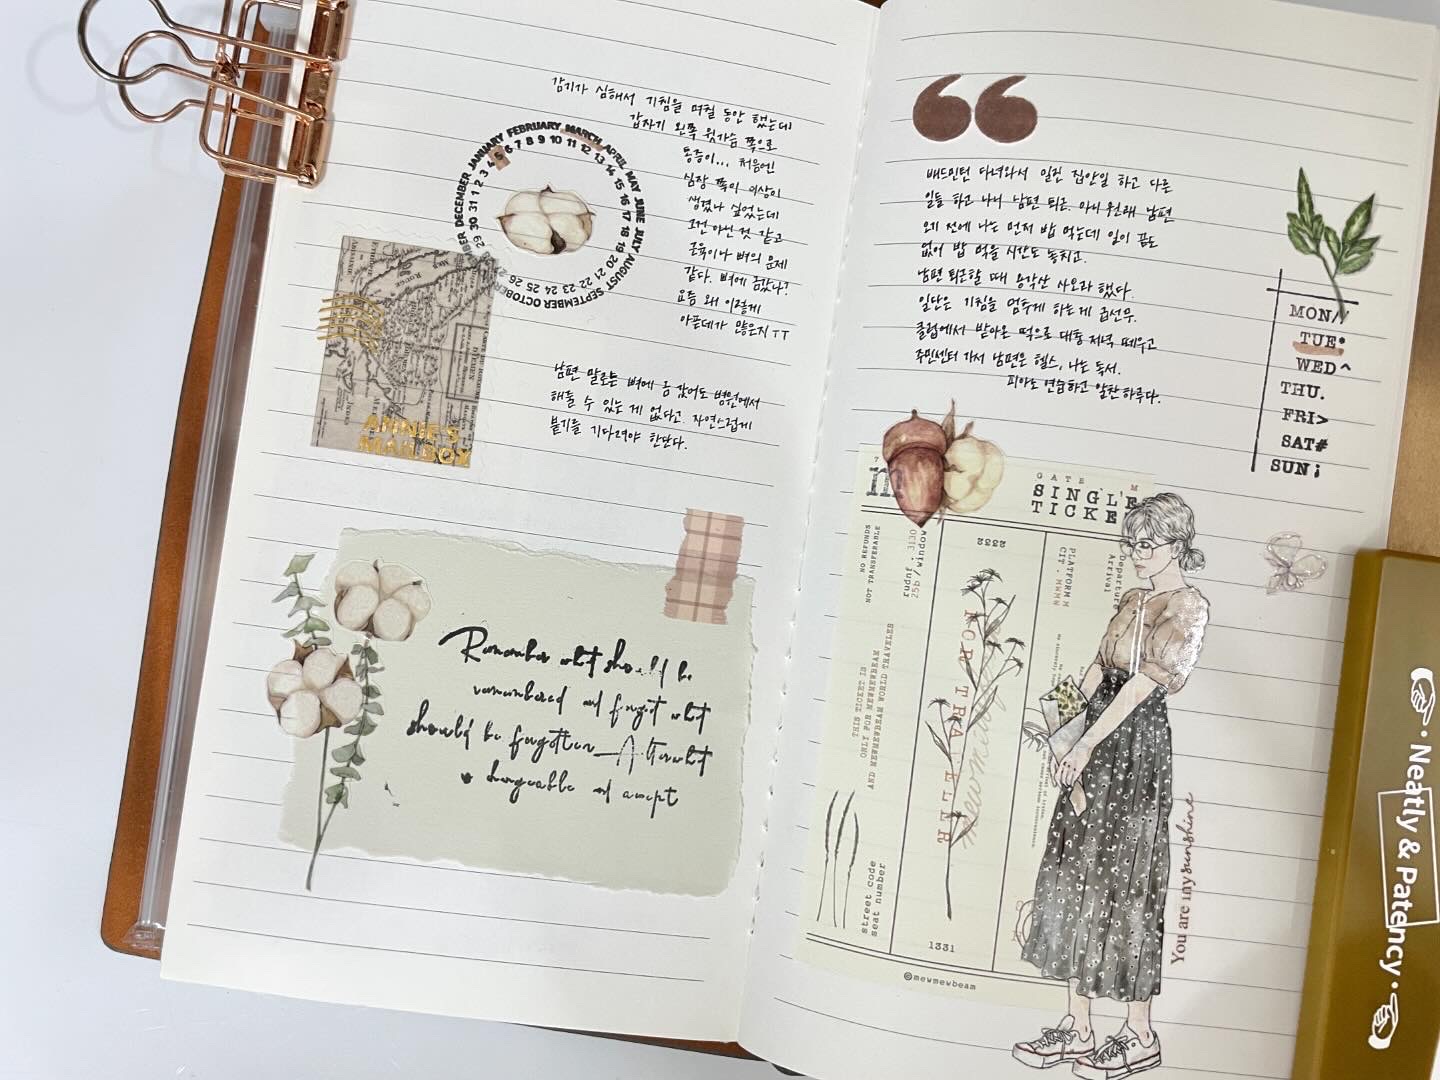 감기가 심해서 기침을 며칠 동안 했는데
갑자기 왼쪽 윗가슴 쪽으로
통증이... 처음엔
심장 쪽이 이상이
생겼나 싶었는데
그건 아닌 것 같고
근육이나 뼈의 문제
같다. 뼈에 금갔나?
요즘 왜 이렇게
아픈데가 많은지 ㅜㅜ
JANUARY FEBRUARY MARCH APRIL MAY JUNE JULY AUGUST SEPTEMBER OCTOBER DECEMBER
1 2 3 4 5 6 7 8 9 10 11 12 13 14 15 16 17 18 19 20 21 22 23 24 25 26 29 30 31
ANNIE'S
MAILBOX
남편 말로는 뼈에 금 갔어도 병원에서
해줄 수 있는 게 없다고. 자연스럽게
붙기를 기다려야 한단다.
Remember what should be
remembered and forget what
should be forgotten. Alter what
is changeable and accept
배드민턴 다녀와서 밀린 집안일 하고 다른
일들 하고 나니 남편 퇴근. 아니 원래 남편
오기 전에 나는 먼저 밥 먹는데 일이 끝도
없어 밥 먹을 시간도 놓치고.
남편 퇴근할 때 용각산 사오라 했다.
일단은 기침을 멈추게 하는게 급선무.
클럽에서 받아온 떡으로 대충 저녁 떼우고
주민센터 가서 남편은 헬스, 나는 독서.
피아노 연습하고 알찬 하루다.
MON/
TUE*
WED^
THU.
FRI>
SAT#
SUN;
GATE M
SINGLE
TICKE
NO REFUNDS
NOT TRANSFERABLE
rudnf . 3130
25b/window
PLATFORM M
CIT . MNMN
Departure
Arrival
FOR TRAVELER
THIS TICKET IS
ONLY FOR NEWMEWBEAM
AND NEWMEWBEAM WORLD TRAVELES
street code
seat number
1331
©mewmewbeam
You are my sunshine
Neatly & Patency